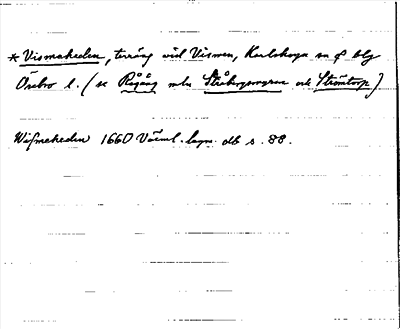 * Vismakeden, terräng vid Vismen, Karlskoga sn o bg
Örebro l. (se Rågång mln Stråbergsmyren och Strömtorp)
Wissmakeden 1660 Värml. lagm. db s. 88.